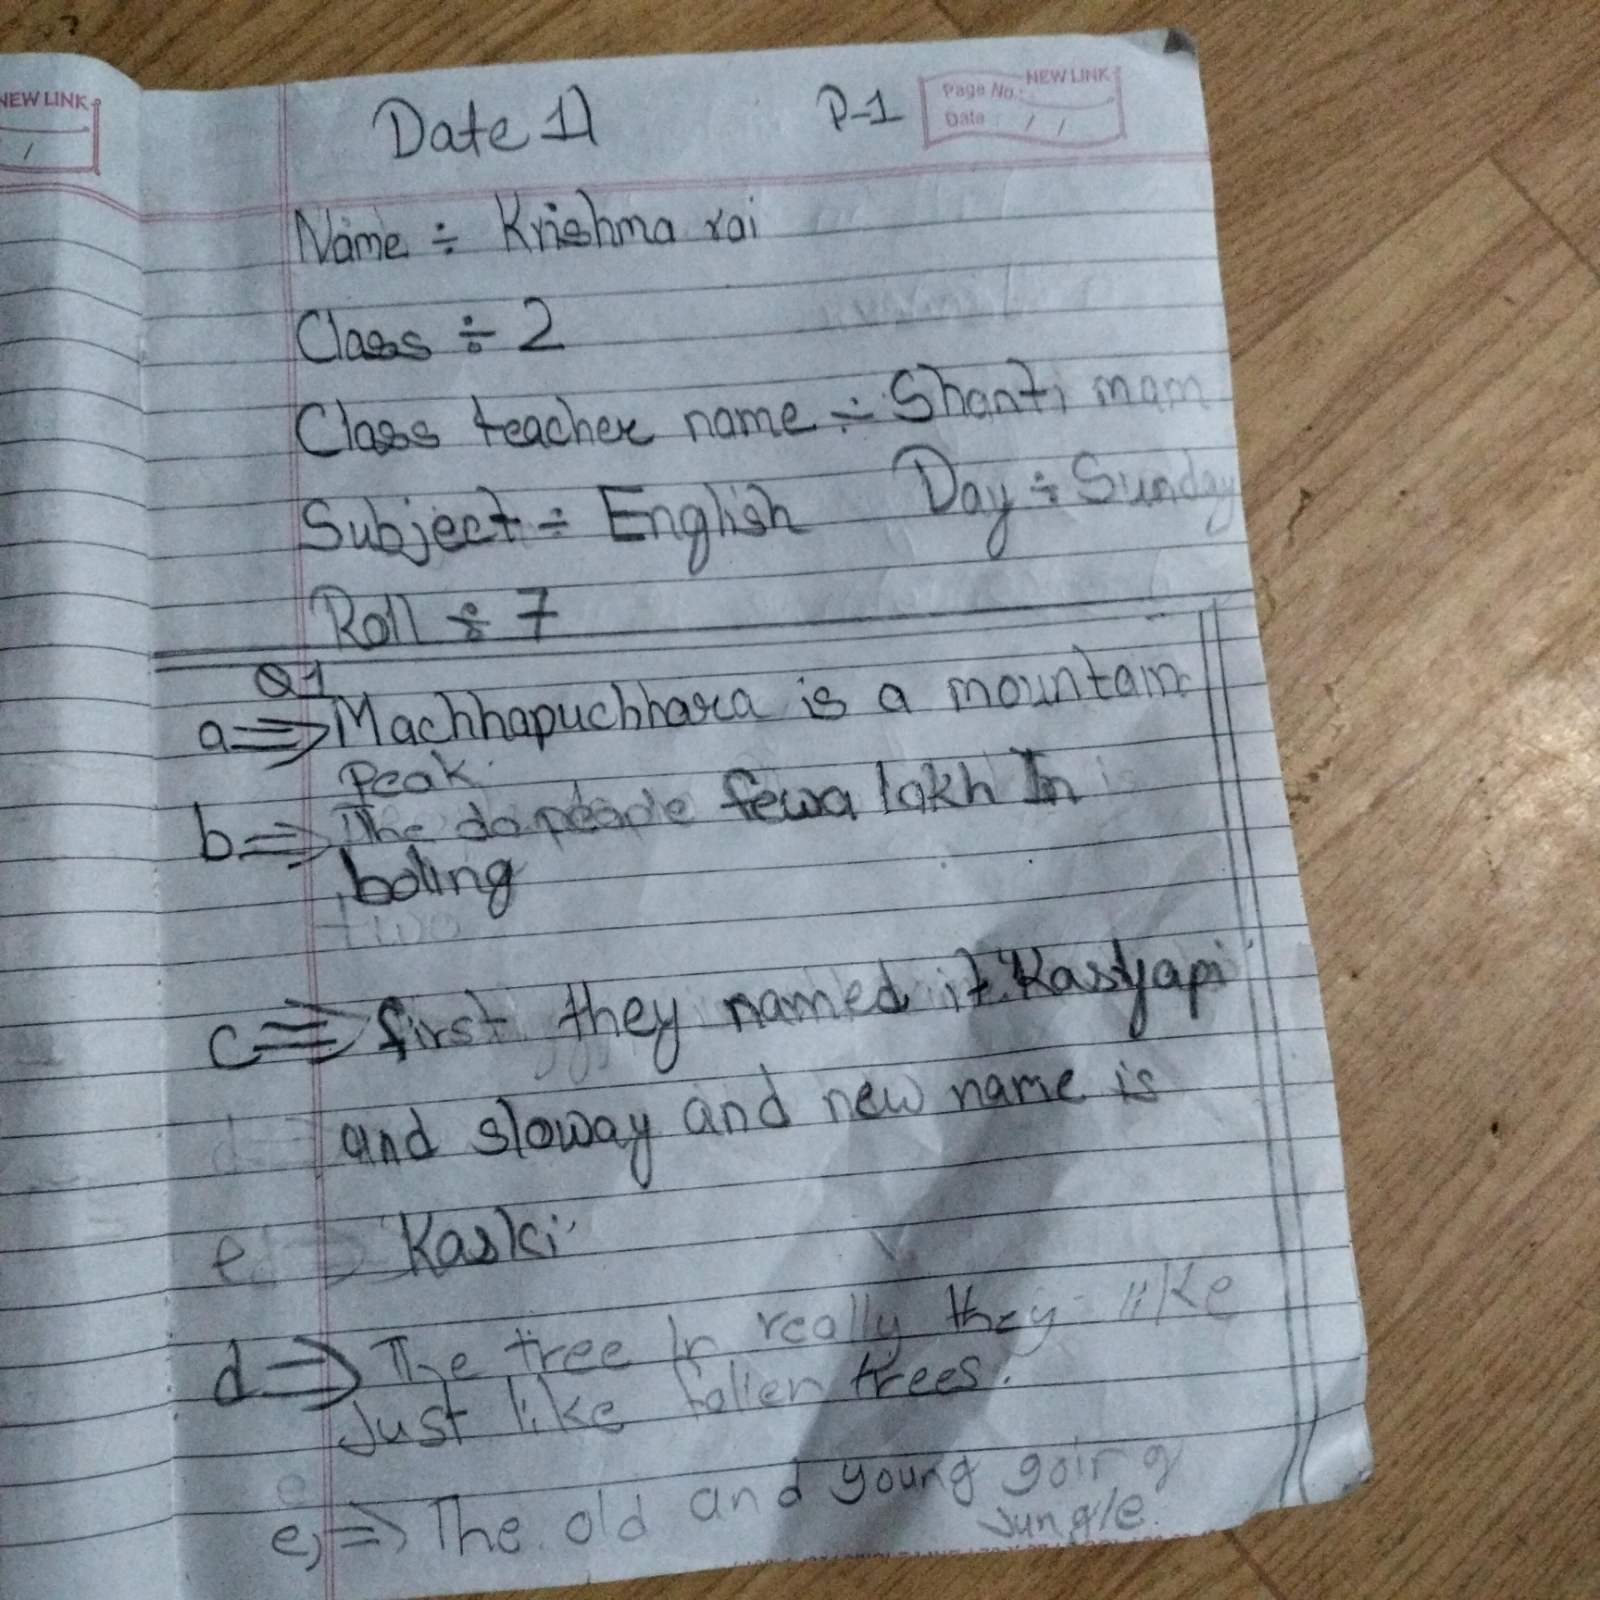 NEW LINK
Date 11 P-1
NEW LINK
Page No.:
Date : / /
Name ÷ Krishma rai
Class ÷ 2
Class teacher name ÷ Shanti mam
Subject ÷ English Day ÷ Sunday
Roll ÷ 7
Q1
a⇒ Machhapuchhara is a mountain
Peak.
b⇒ The do people fewa lakh In
boling
two
c⇒ first they named it "Kasyapi
and sloway and new name is
e Kaski
d⇒ The tree In really they like
Just like fallen trees.
e,⇒ The old and young going
Jungle.